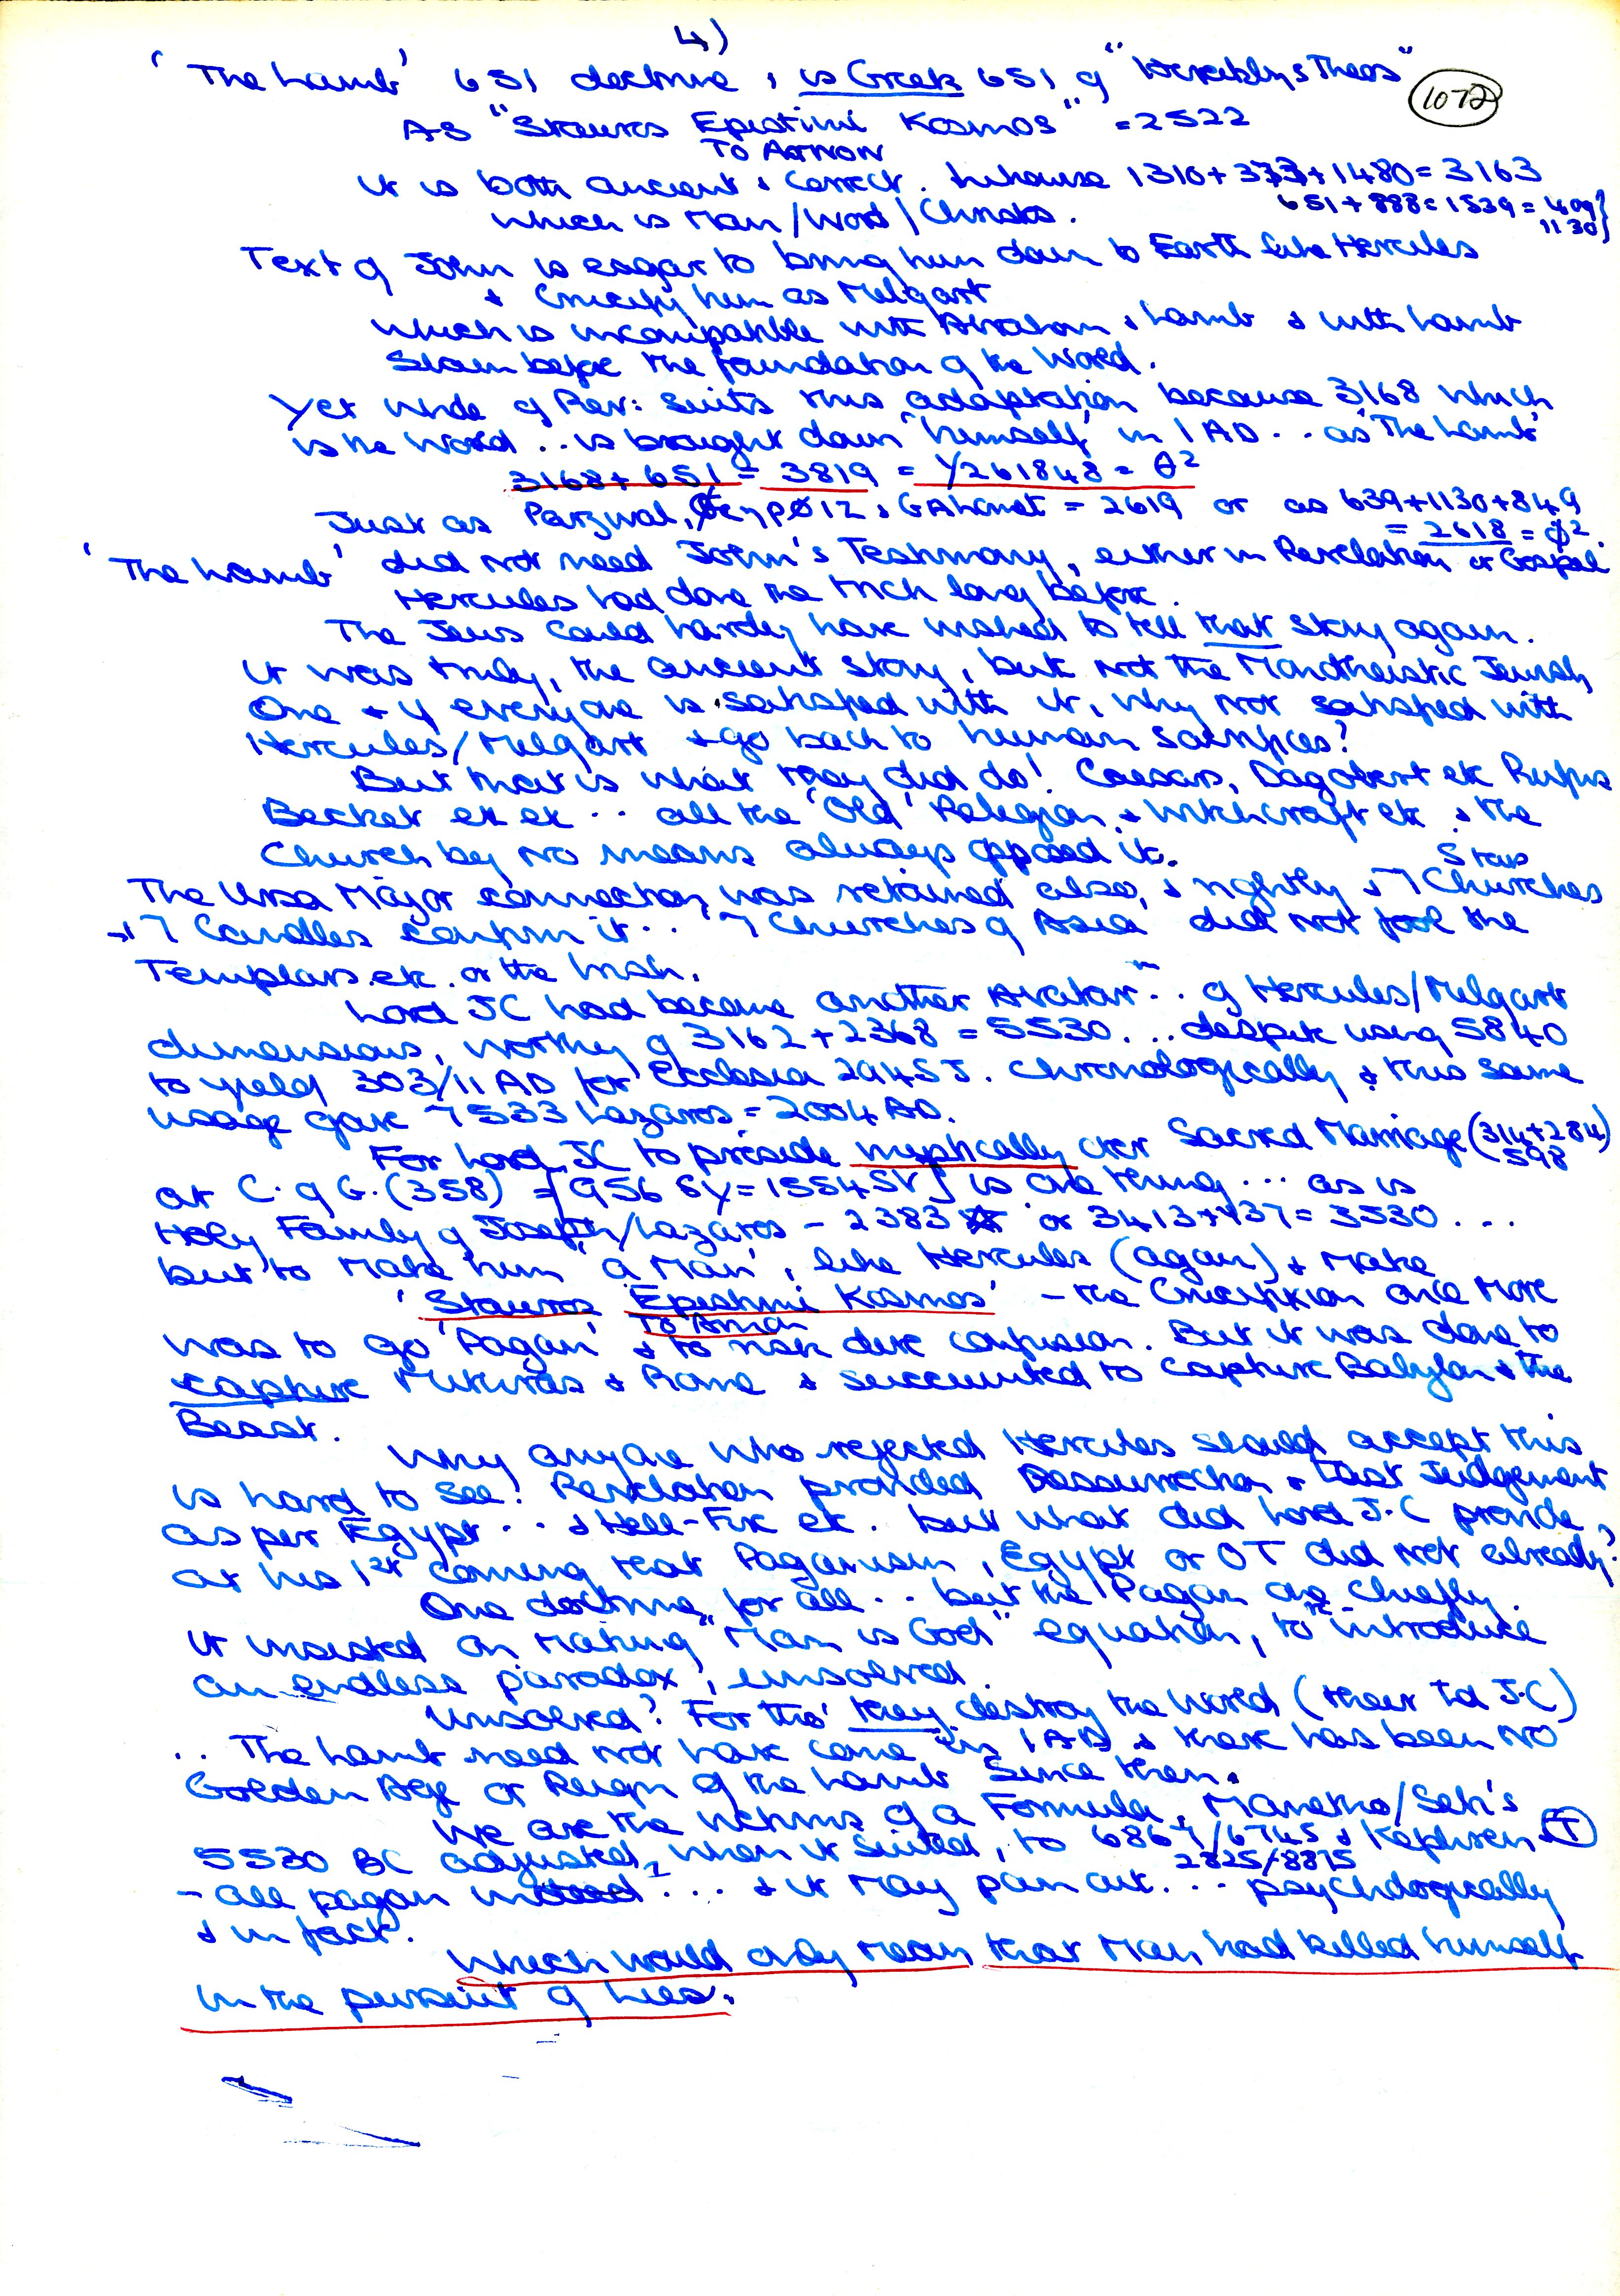 4)
'The Lamb' 651 doctrine, is Greek 651 of "Herakleys Theos"
1072
As "Stauros Epistimi Kosmos" = 2522
To Arnion
It is both ancient & correct. 1310 + 373 + 1480 = 3163
Which is Man/Word/Christos.
651 + 888 = 1539 = 409
1130
Text of John is eager to bring him down to Earth like Hercules
& Crucify him as Melqart
Which is incompatible with Abraham & Lamb & with Lamb
Slain before the foundation of the World.
Yet whole of Rev: suits this adaptation because 3168 which
is the Word .. is brought down 'himself' in 1 AD .. as 'The Lamb'
3168 + 651 = 3819 = 1/261848 = θ²
Just as Parzival, & Galahad = 2619 or as 639+1130+849
= 2618 = φ².
'The Lamb' did not need John's Testimony, either in Revelation or Gospel
Hercules had done the trick long before.
The Jews could hardly have wished to tell that story again.
It was truly, the ancient story, but not the Monotheistic Jewish
One & if everyone is satisfied with it, why not satisfied with
Hercules/Melqart & go back to human sacrifices?
But that is what they did do! Caesars, Dagobert etc Rufus
Becket etc etc .. all the 'Old' Religion & Witchcraft etc & the
Church by no means always opposed it.
Stars
The Ursa Major connection was retained also, & rightly & 7 Churches
& 7 Candles confirm it .. '7 Churches of Asia' did not fool the
Templars etc. or the Irish.
Lord JC had become another Avatar .. of Hercules/Melqart
dimensions, worthy of 3162 + 2368 = 5530 ... despite using 5840
to yield 303/11 AD for Ecclesia 294SJ. Chronologically & this same
usage gave 7533 Lazaros = 2004 AD.
For Lord JC to preside mystically over Sacred Marriage (314+284)
598
at C. of G. (358) = [956 SY = 1554 SV] is one thing ... as is
Holy Family of Joseph/Lazaros - 2383 or 3413 + 137 = 3530 ...
but to Make him 'a Man', like Hercules (again) & Make
'Stauros Epistimi Kosmos' - the Crucifixion once more
To Arnion
was to go 'Pagan' & to risk dire confusion. But it was done to
capture Mithras & Rome & succeeded to capture Babylon & the
Beast.
Why anyone who rejected Hercules should accept this
is hard to see! Revelation provided Resurrection & Last Judgement
as per Egypt .. & Hell-Fire etc. but what did Lord J.C provide,
at his 1st coming that Paganism, Egypt or OT did not already?
One doctrine, for all .. but the Pagan one chiefly.
It insisted on making "Man is God" equation, to introduce
an endless paradox, unsolved.
Unsolved? For tho' they destroy the World (their Ld J.C)
.. The Lamb need not have come in 1 AD & there has been NO
Golden Age or Reign of the Lamb since then.
We are the victims of a Formula, Manetho/Seth's
5530 BC adjusted, when it suited, to 6867/6745 & Kephren &
T
2825/8815
- all pagan indeed ... & it may pan out ... psychologically
& in fact.
Which would only mean that Man had killed himself
in the pursuit of Lies.